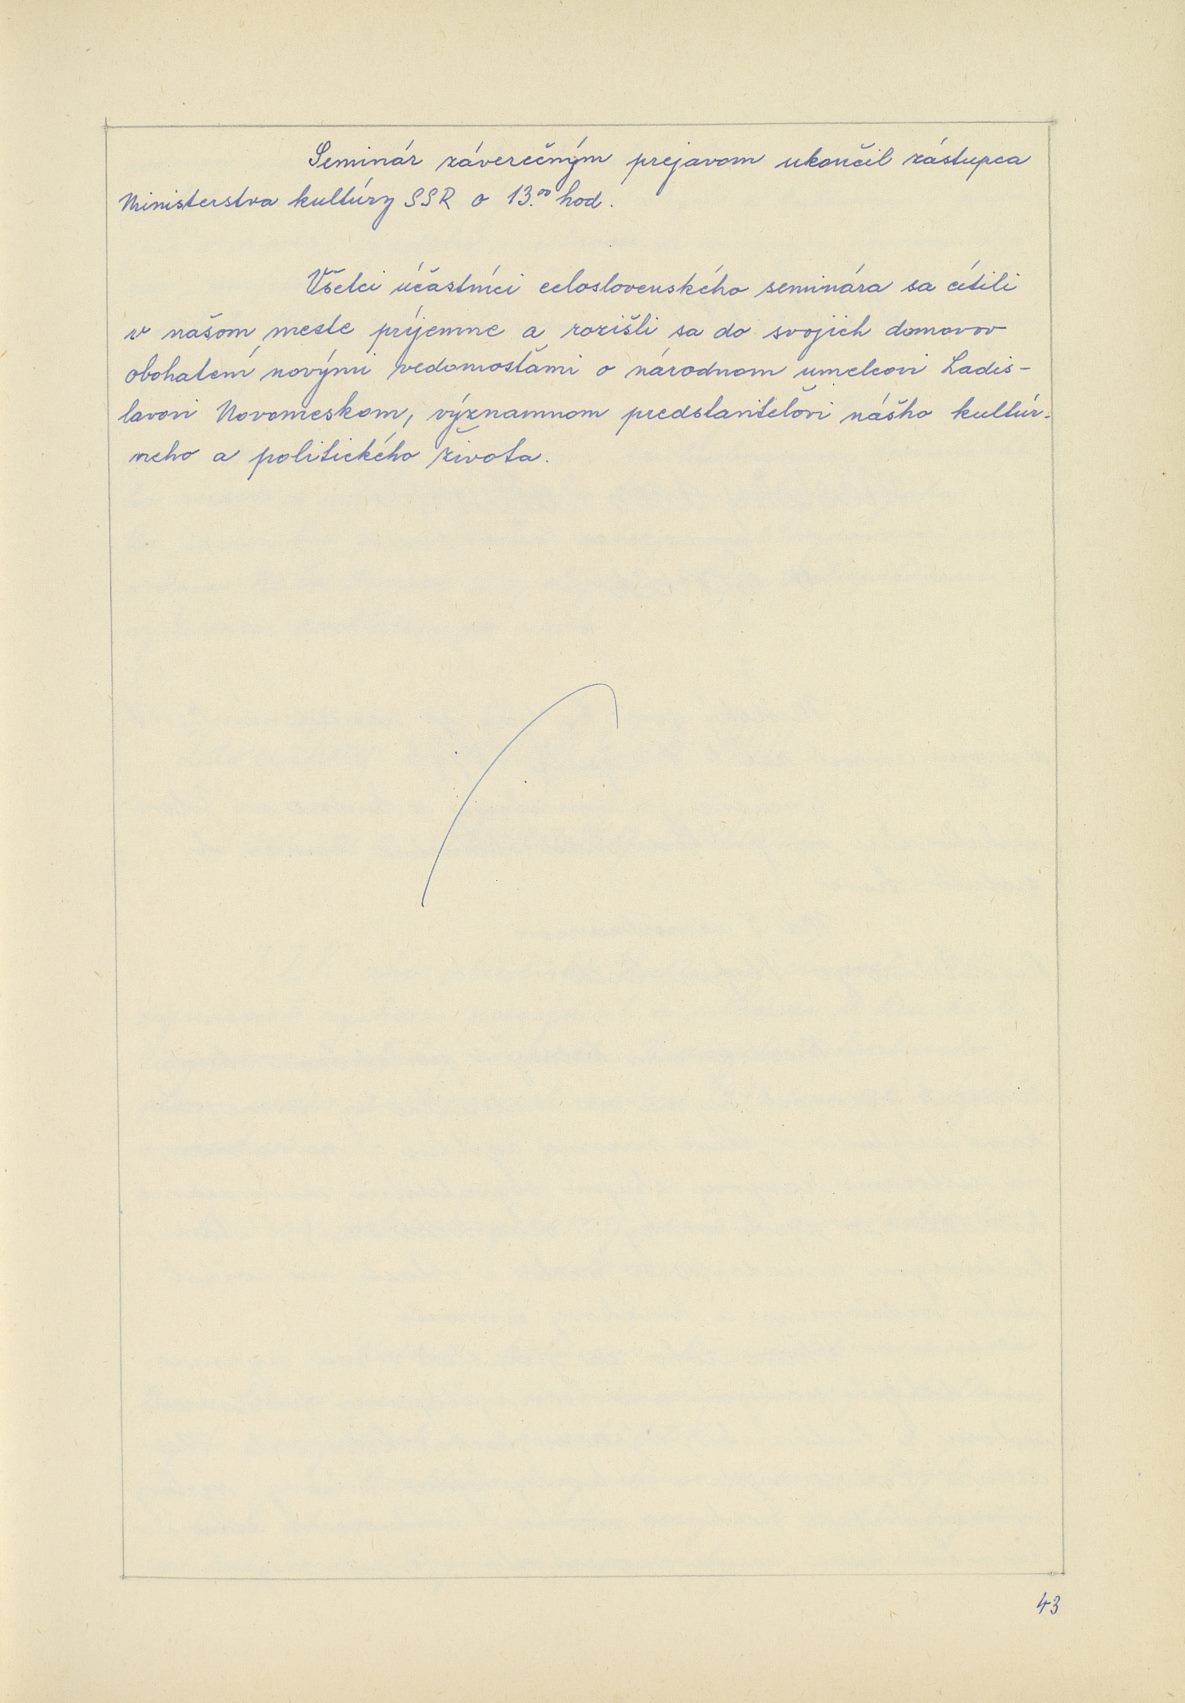 Seminár záverečným prejavom ukončil zástupca
Ministerstva kultúry SSR o 13.00 hod.
Všetci účastníci celoslovenského seminára sa cítili
v našom meste príjemne a rozišli sa do svojich domovov
obohatení novými vedomosťami o národnom umelcovi Ladis-
lavovi Novomeskom, významnom predstaviteľovi nášho kultúr-
neho a politického života.
43